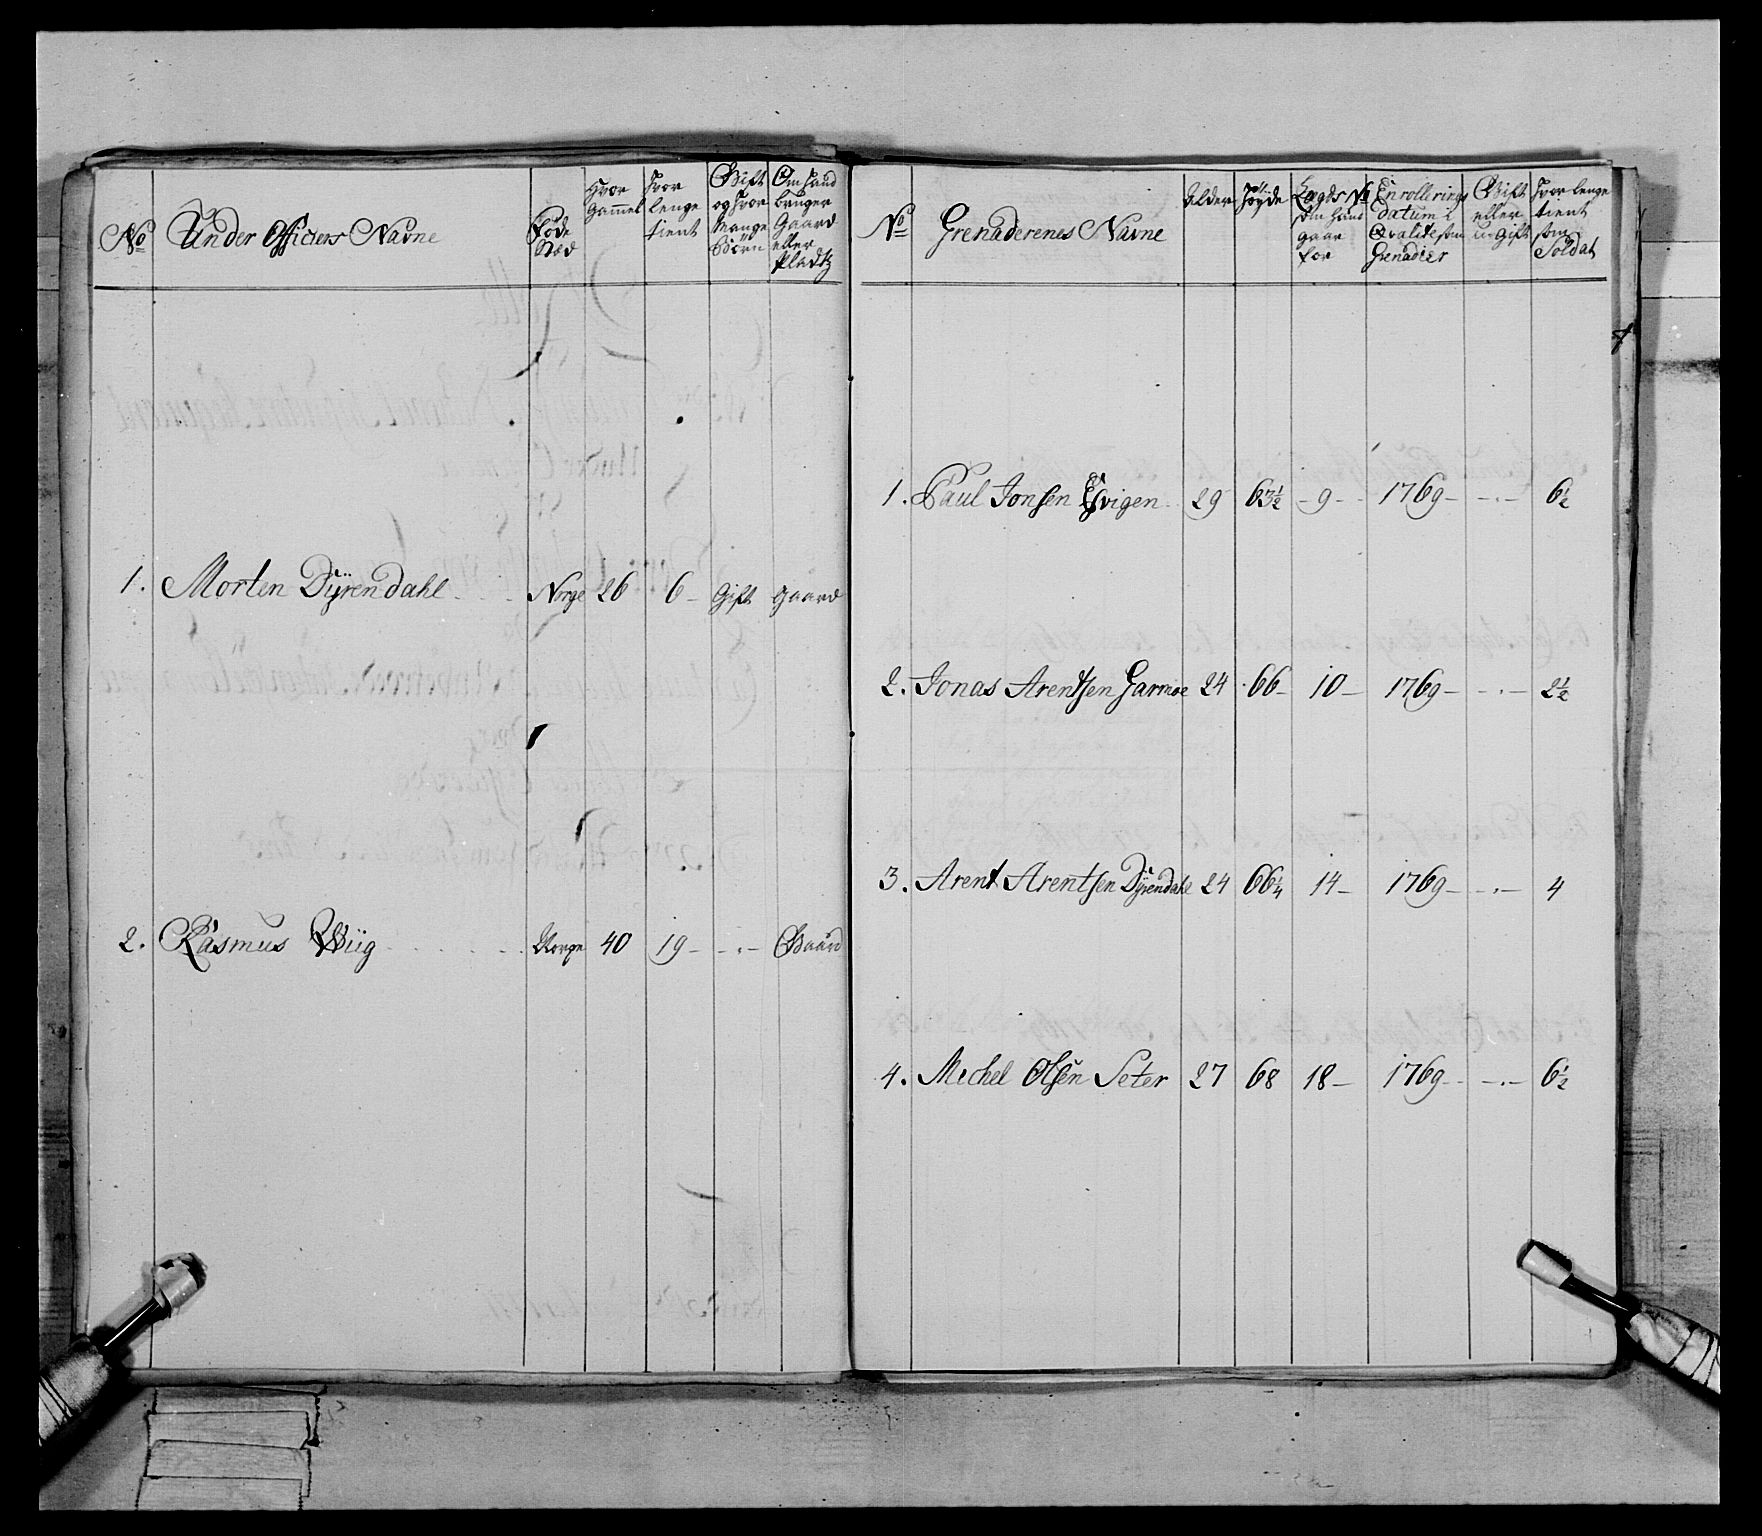 No
Under Officiers Navne
Føde
Stød
Hvor
Gammel
hvor
lenge
tient
Gift
og hvor
Mange
Børn
Om hand
bruger
Gaard
eller
Pladtz
1. Morten Dÿrendahl Norge 26 6 Gift gaard
2. Rasmus Wiig Norge 40 19 - . - Gaard
No
Grenaderenes Navne
Alder
Høyde
Lægds No
om hand
gaar
for
Enrollerings
datum i
Qvalite som
Grenadier
Gift
eller
u-Gift
hvor lenge
tient
som
Soldat
1. Paul Jonsen 29 63½ - 9 - 1769 - . - 6½
2. Jonas Arentsen Garmoe 24 66 - 10 - 1769 - . - 2½
3. Arent Arentsen Dÿrendahl 24 66¼ 14 - 1769 - . - 4
4. Michel Olsen Seter 27 68 18 - 1769 - . - 6½